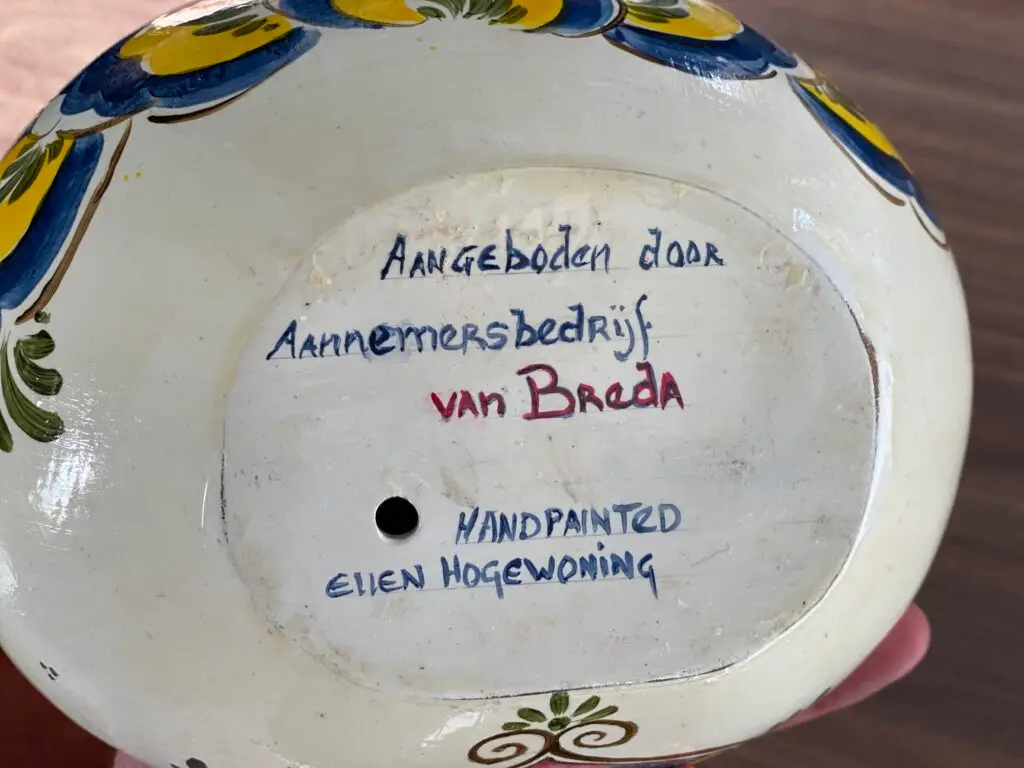 Aangeboden door
Aannemersbedrijf
van Breda
HANDPAINTED
Ellen Hogewoning